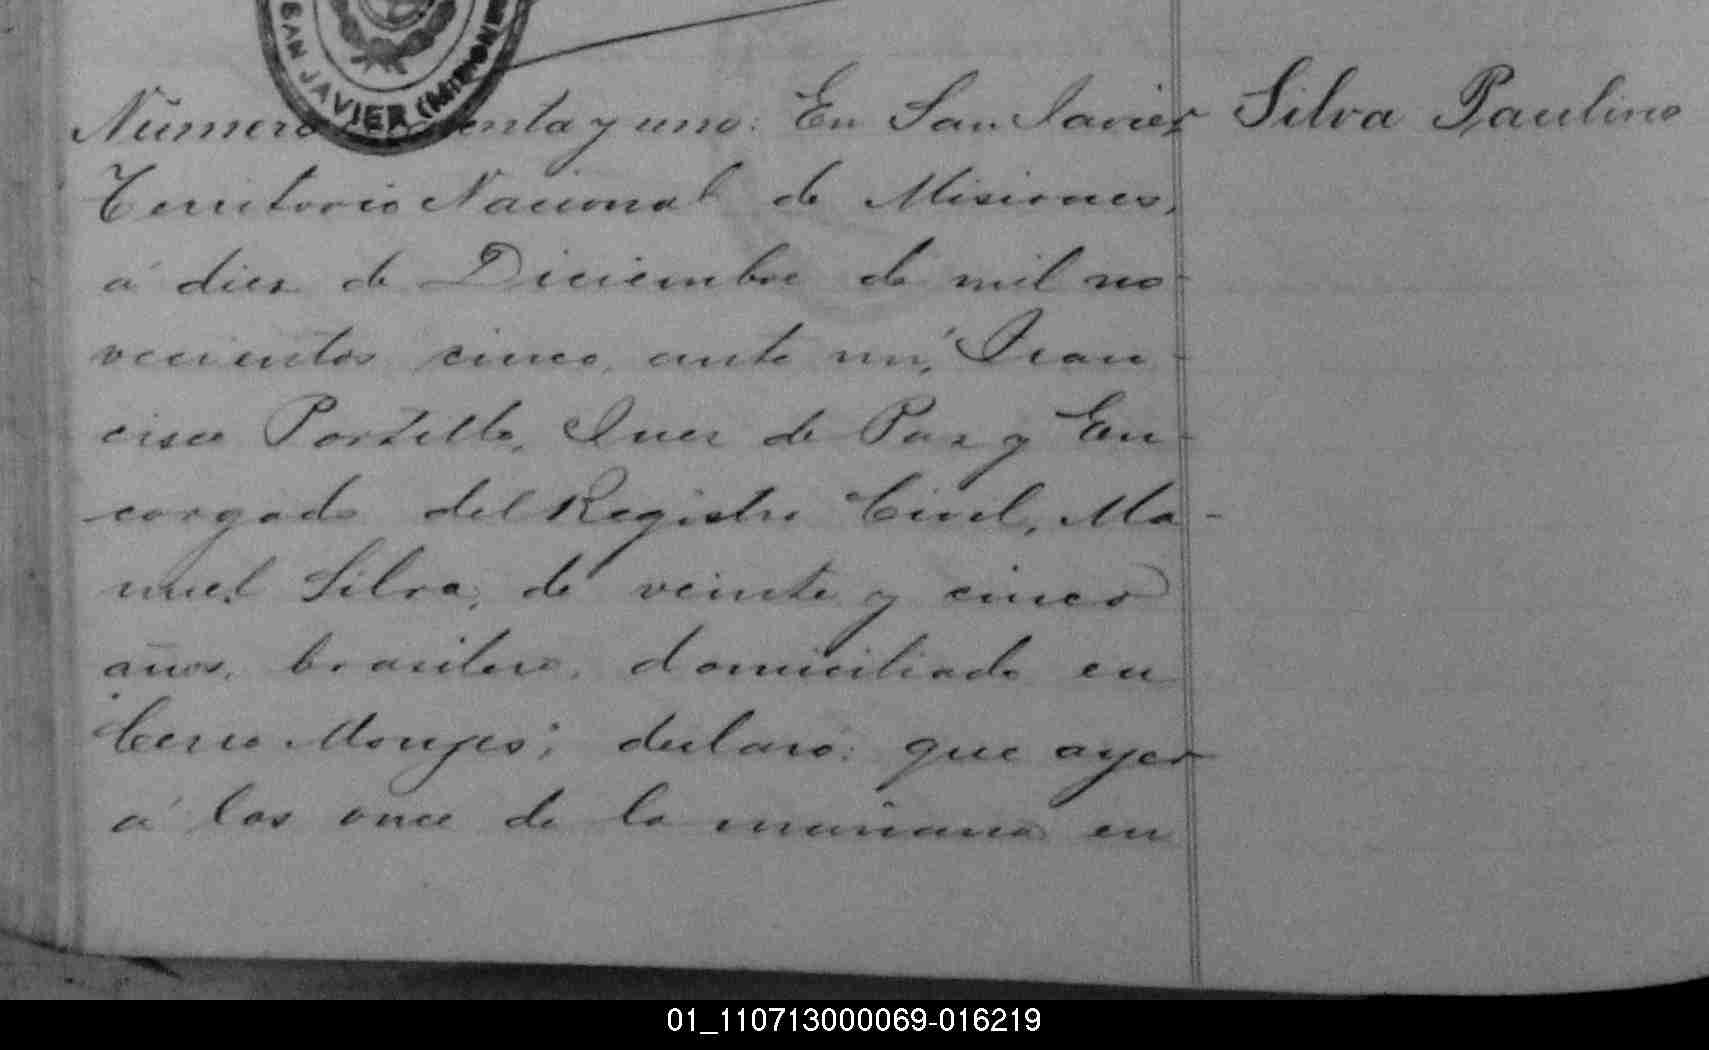 SAN JAVIER (MISIONE
Número enta y uno: En San Javier
Silva Paulino
Territorio Nacional de Misiones,
á diez de Diciembre de mil no-
vecientos cinco, ante mí, Fran-
cisco Portillo, Juez de Paz y En-
cargado del Registro Civil, Ma-
nuel Silva, de veinte y cinco
años, brasilero, domiciliado en
Cerro Monjes; declaró: que ayer
á las once de la mañana en
01_110713000069-016219